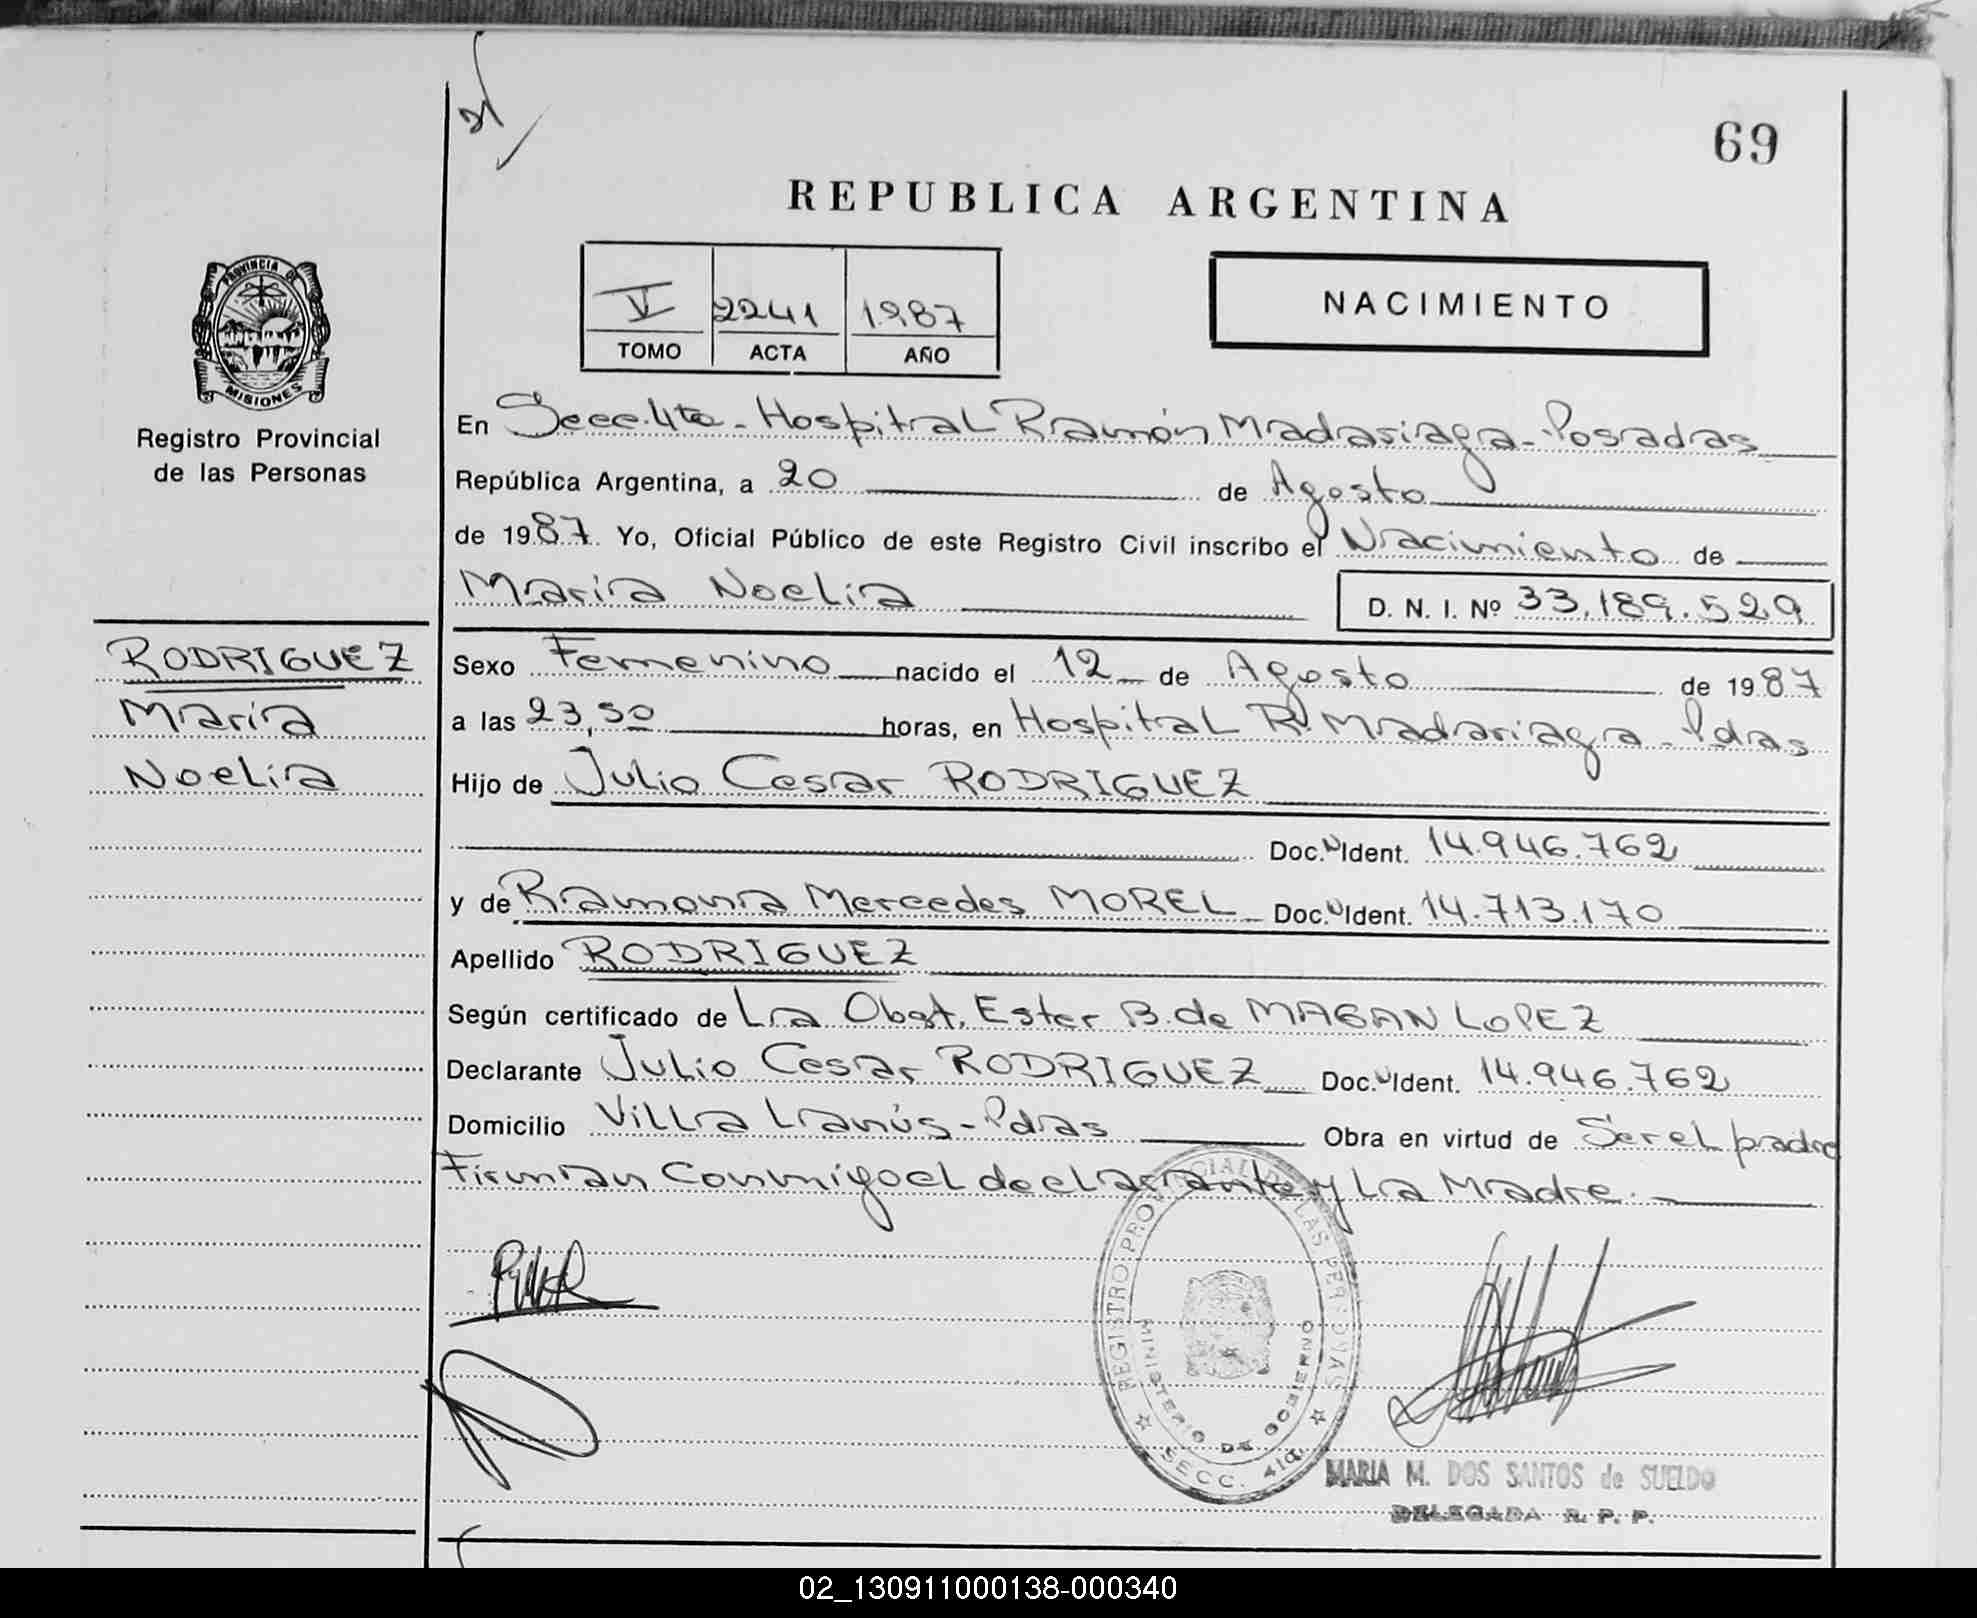 69
REPUBLICA ARGENTINA
V 2241 1987
TOMO ACTA AÑO
NACIMIENTO
PROVINCIA DE
MISIONES
Registro Provincial
de las Personas
En Secc. 4ta - Hospital Ramón Madariaga - Posadas
República Argentina, a 20 de Agosto
de 1987. Yo, Oficial Público de este Registro Civil inscribo el Nacimiento de
Maria Noelia D. N. I. Nº 33.189.529
RODRIGUEZ
María
Noelia
Sexo Femenino nacido el 12 de Agosto de 1987
a las 23,50 horas, en Hospital R. Madariaga - Pdas
Hijo de Julio Cesar RODRIGUEZ
Doc. Ident. 14.946.762
y de Ramona Mercedes MOREL Doc. Ident. 14.713.170
Apellido RODRIGUEZ
Según certificado de La Obst. Ester B. de MAGAN LOPEZ
Declarante Julio Cesar RODRIGUEZ Doc. Ident. 14.946.762
Domicilio Villa Lanús - Pdas Obra en virtud de Ser el padre
Firman Conmigo el declarante y La Madre.
REGISTRO PROVINCIAL DE LAS PERSONAS
MINISTERIO DE GOBIERNO
SECC. 4ta
MARIA M. DOS SANTOS de SUELDO
DELEGADA R. P. P.
02_130911000138-000340